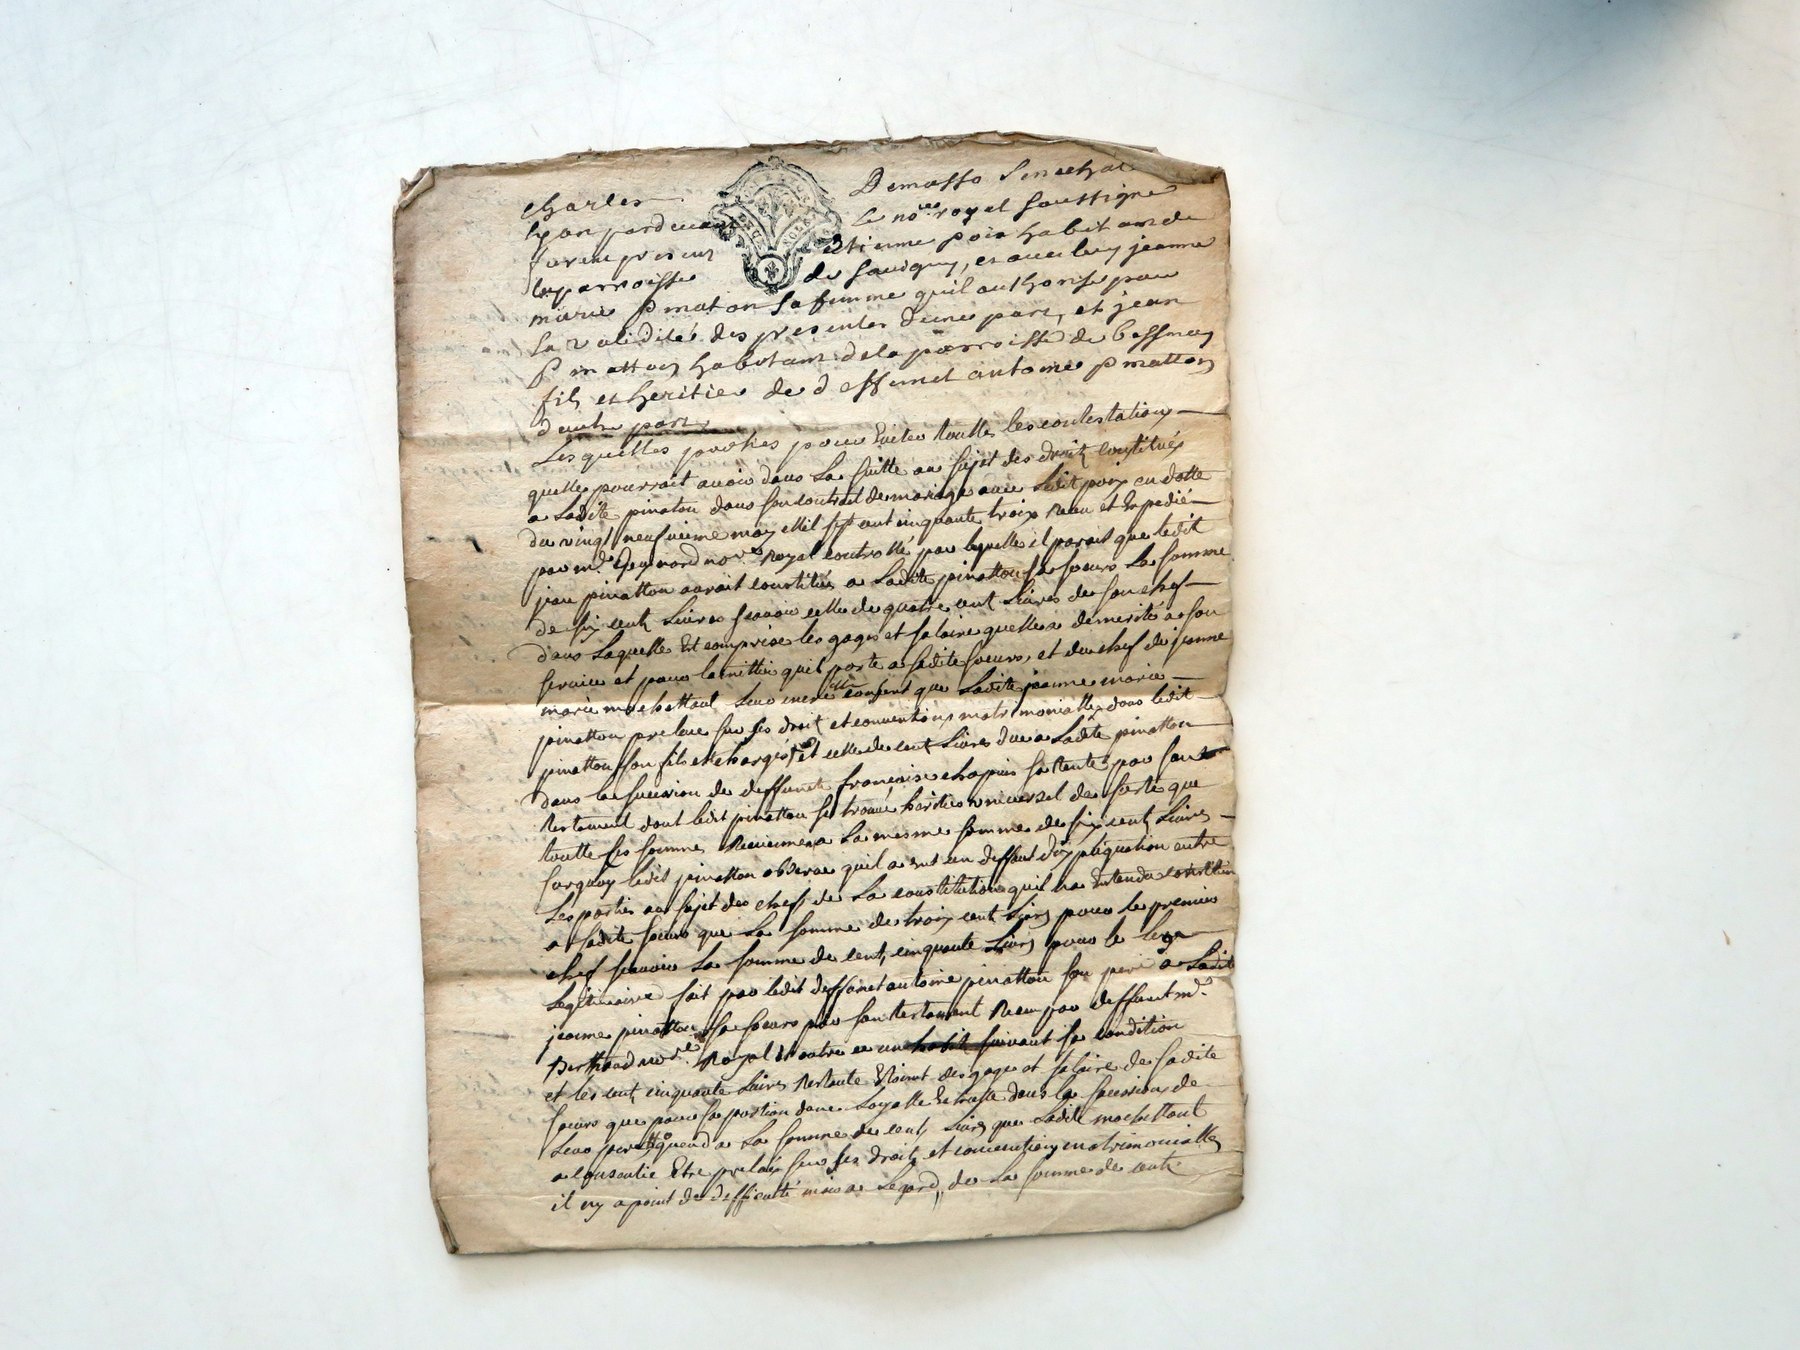 Charles Demasso Senechal
Lyon pardevant le no.re royal soussigné
furent presens Etienne poix habitant de
la parroisse de Savigny, et avec luy jeanne
marie Pinaton sa femme quil authorise pour
la validité des presentes d'une part, et jean
Pinatton habitant de la parroisse de bessenay
fils et heritier de deffunct antoine pinatton
d'autre part
Lesquelles parties pour Eviter toutes les contestations
quelles pourrait avoir dans la suitte au sujet des droits constitués
a Ladite pinaton dans son contrat de mariage avec Ledit poix en datte
du vingt neufvieme may Mil sept cent cinquante trois Receu et Expedié
par m.e no.re Royal controllé par lequelle il parait que ledit
jean pinatton aurait constitué a Ladite pinatton sa soeurs La somme
de six cents Livres scavoir celle de quatre cents Livres de son chef
dans Laquelle Est comprise les gages et salaire quelle a demerité a son
service et pour lamittié quil porte a sadite soeurs, et du chef de jeanne
marie mochettant leur mere consent que Ladite jeanne marie
pinatton preleve sur ses droit et conventions matrimonialles dans ledit
pinatton son fils et chargés et celle de cent Livres due a Ladite pinatton
dans la sucession de deffunte francoise chapuis sa tente par son
testament dont ledit pinatton se trouve heritier universel de sorte que
toutte ses sommes Reviennent a La mesme somme de six cents Livres
surquoy ledit pinatton observe quil a Eut un deffaut dexpliquation entre
Les parties au sujet des chefs de La constitution quil na Entendu constituer
a sadite soeurs que La somme de trois cents Livres pour le premier
chef scavoir La somme de cent cinquante Livres pour le legs
Legitimaire fait par ledit deffunct antoine pinatton son pere a Ladite
jeanne pinatton sa soeurs par son testament Receu par deffunt m.e
no.re Royal Et outre ce un habit suivant sa condition
et les cents cinquante Livres Restante Etoient des gages et salaire de sadite
soeurs que pour sa portion dans dans la sucession de
Leur pere quand a La somme de cents Livres que Ladite mochettant
a consentie Etre prelevé sur ses droits et conventions matrimonialles
il ny a point de difficulté mais a Legard de La somme de cents